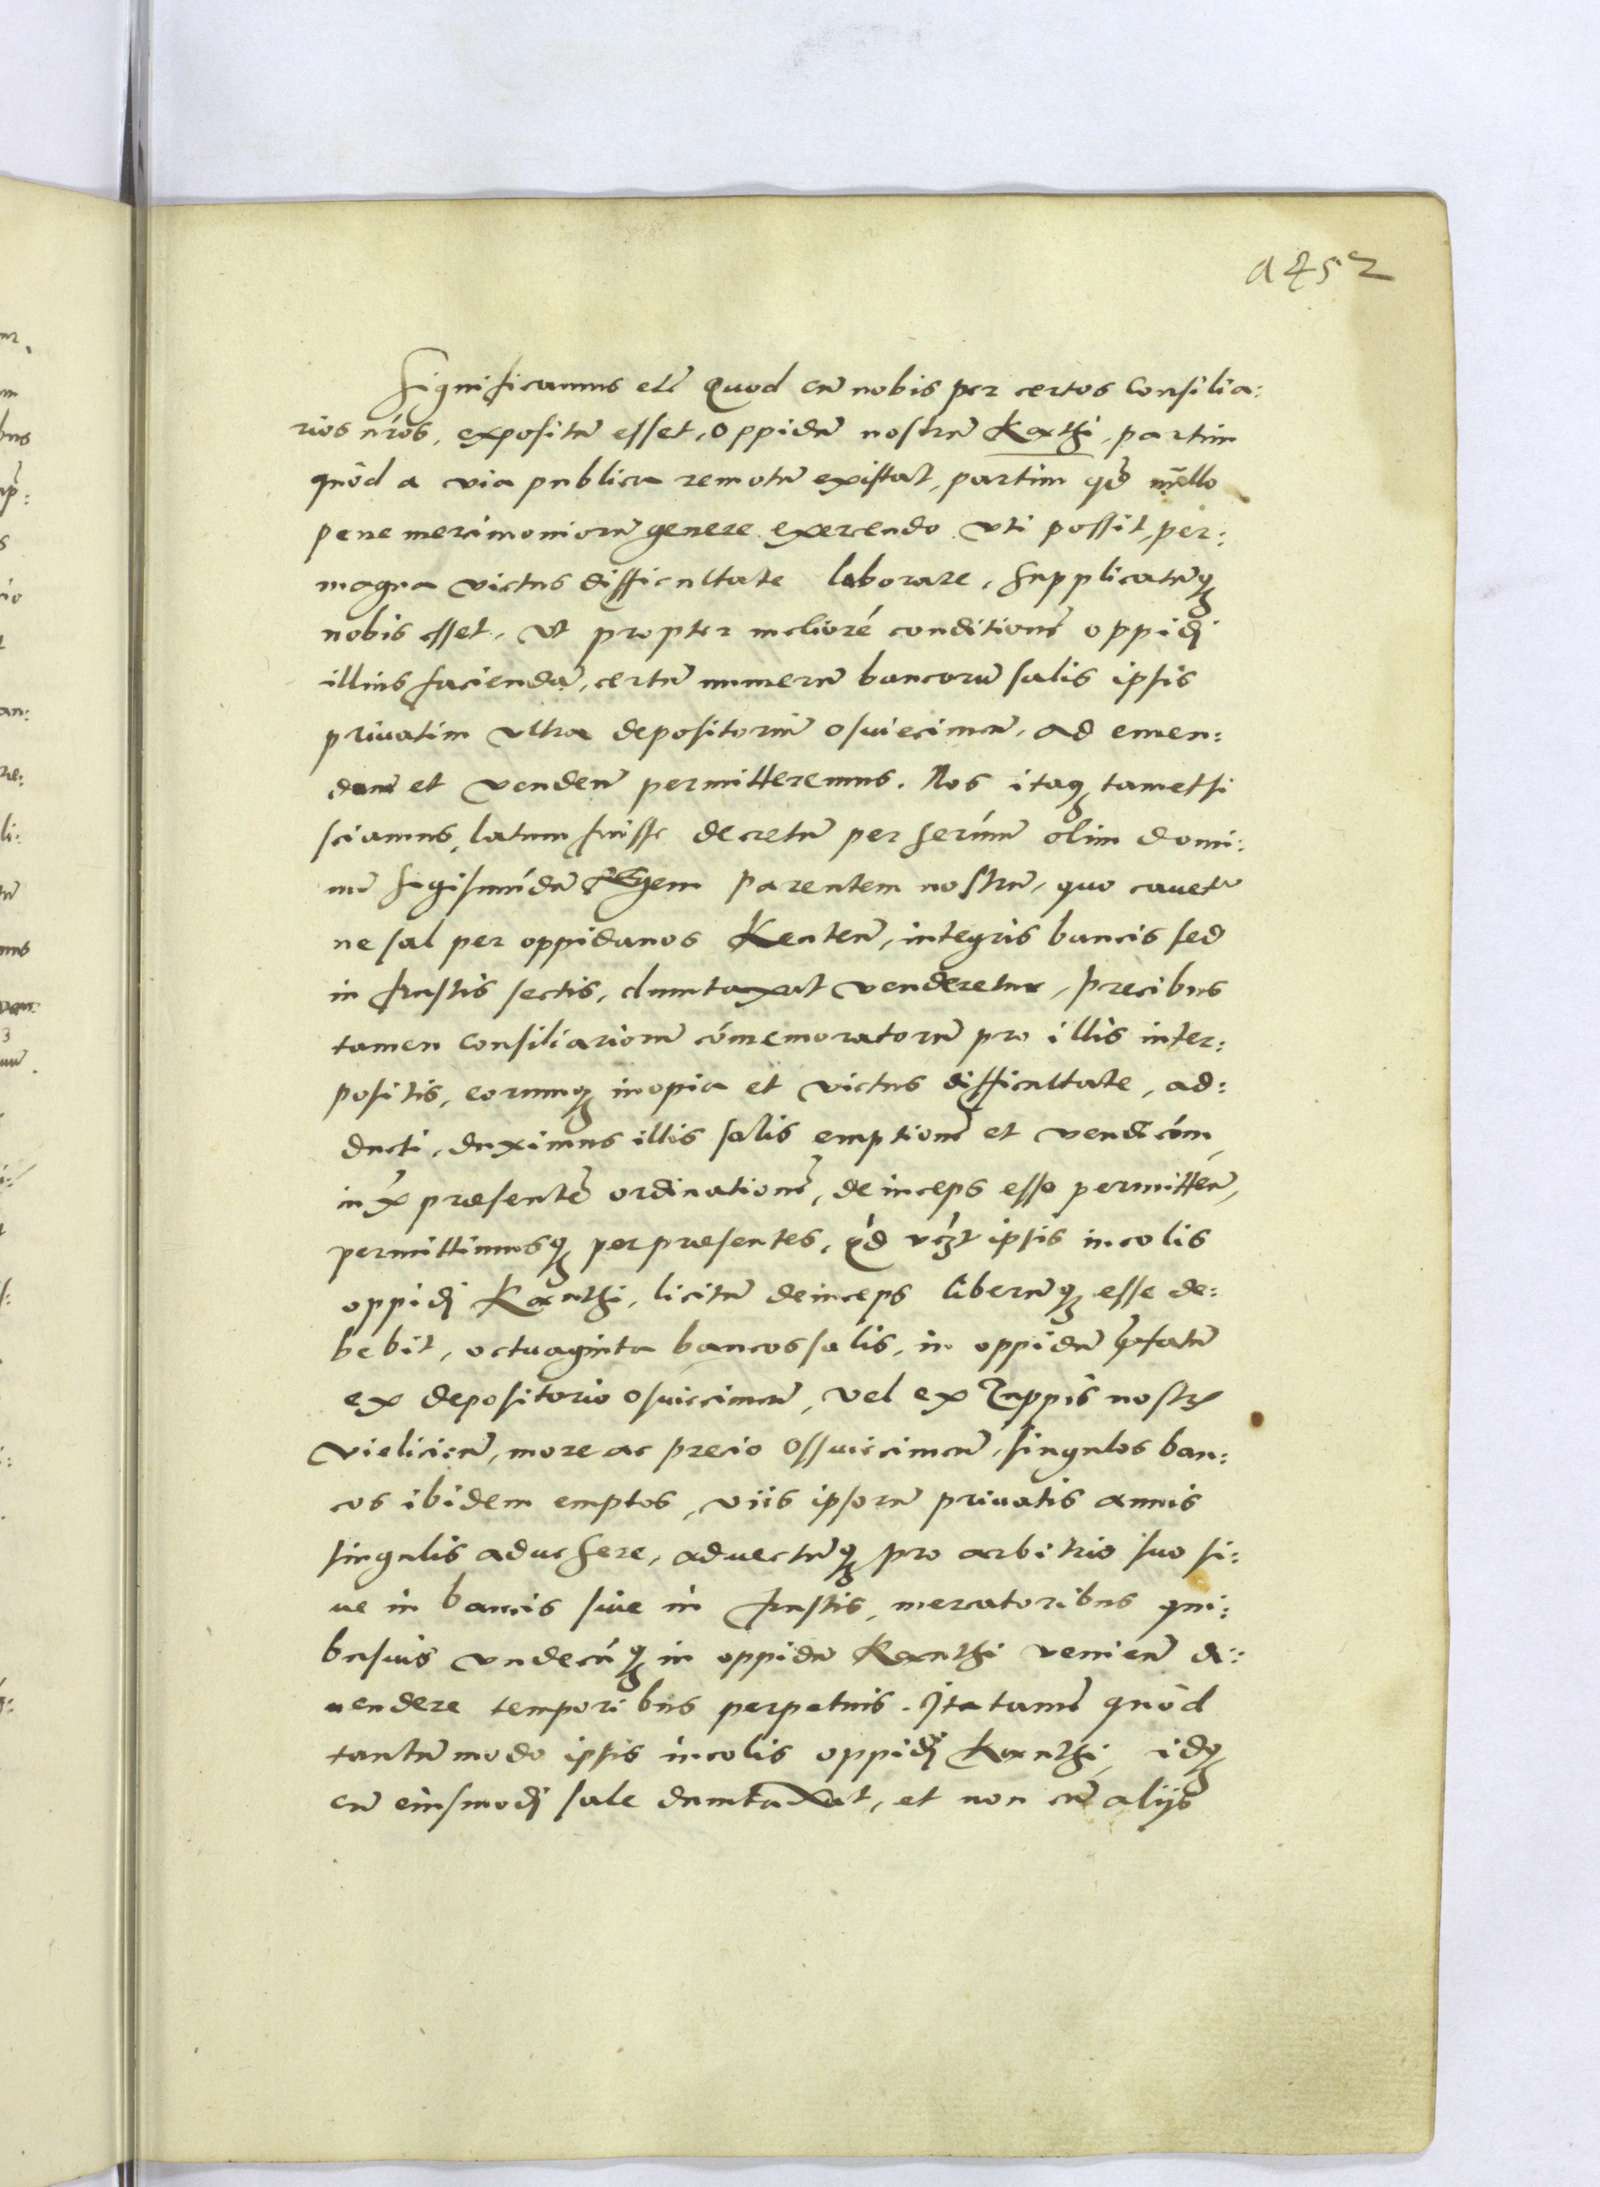 a 452
Significamus etc̃ Quod cũ nobis per certos Consilia:
rios nr̃os, expositũ esset, oppidũ nostrũ Kαthi, partim
quòd a via publica remotũ existat, partim qd̃ nullo
pene mercimoniorũ genere exercendo vti possit, per:
magna victus difficultate laborare, supplicatũq3
nobis esset, Vt propter melioré conditionẽ oppidj
illius faciendã, certũ numerũ bancorũ salis ipsis
priuatim vltra depositoriũ osuiecimeñ, ad emen:
dum et vendeñ permitteremus. Nos itaq3 tametsi
sciamus, latum fuisse decretũ per serm̃um olim domi:
nũ Sigismũdũ Regem Parentem nostrũ, quo cauetr
ne sal per oppidanos Kenteñ, integris bancis sed
in frustis sectis, dumtaxat venderetur, precibus
tamen consiliariorũ cõmemoratorũ pro illis inter:
positis, eorumq3 inopia et victus difficultate, ad:
ducti, duximus illis salis emptionẽ et vendicõm,
iux̃ præsentẽ ordinationẽ, deinceps esse permitteñ,
permittimusq3 per præsentes, qd̃ vcz̃t ipsis incolis
oppidj Kænthi, licitũ deinceps liberũq3 esse de:
bebit, octuaginta bancos salis, in oppidũ p̃fatũ
ex depositorio osuiecimeñ, vel ex Zuppis nostris
vielicieñ, more ac precio Ossuiecimeñ, singulos ban:
cos ibidem emptos, viis ipsorũ priuatis annis
singulis aduehere, aduectũq3 pro arbitrio suo si:
ue in bancis siue in frustis, mercatoribus qui:
busuis vndecũq3 in oppidũ Kænthi venieñ di:
uendere temporibus perpetuis. Ita tamẽ quòd
tantũmodo ipsis incolis oppidj Kænthi, idq3
cũ eiusmodj sale dumtaxat, et non cũ alijs